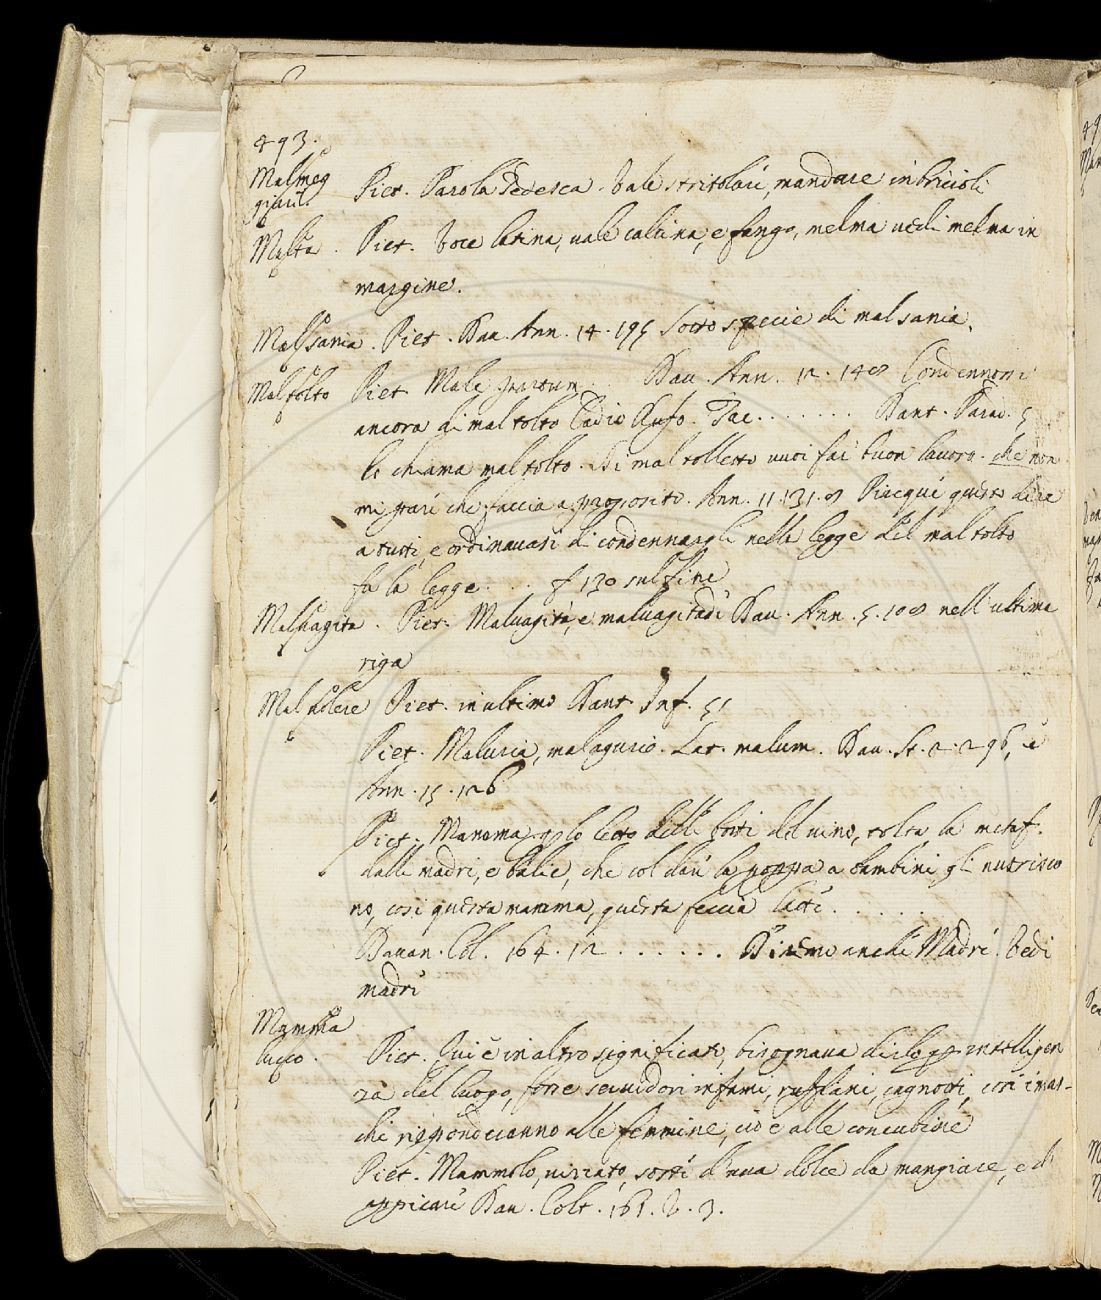 493.
Malmeg
giare
Piet. Parola Tedesca. Vale stritolare, mandare in bricioli
Malta . Piet. Voce latina, vale calcina, e fango, melma vedi melma in
margine.
Malsania . Piet. Dau. Ann. 14. 195 Sotto specie di malsania.
Maltolto Piet. Male partum . . Dau. Ann. 12. 148 Condennossi
ancora di maltolto Cadio Rufo. Tac. . . . . . . Dant. Parad. 5
lo chiama maltolto. Di mal tolletto vuoi far buon lavoro. che non
mi pare che faccia a proposito. Ann. 11. 131. 8 Piacque questo dire
a tutti, e ordinavasi di condennargli nella legge del mal tolto
fu la legge . . . f 130 sul fine
Malvagita . Piet. Malvagità, e malvagitadi Dau. Ann. 5. 108 nell ultima
riga
Malvolere Piet. in ultimo Dant Inf. 51
Piet. Maluria, malagurio. Lat. malum. Dau. St. 2. 296, e
Ann. 15. 126
Piet. Mamma pp lo letto delle botti del vino, tolta la metaf.
dalle madri, e balie, che col dare la poppa a bambini gli nutrisco
no, così questa mamma, questa feccia latte . . . . .
Davan. Col. 164. 12 . . . . . . Dicemo anche Madre. Vedi
madre
Mamma
lucco . Piet. Qui è in altro significato, bisognava dirlo pp intelligen
za del luogo, forse servidori infami, ruffiani, cagnotti, così i mas-
chi risponderanno alle femmine, cio è alle concubine
Piet. Mammolo, viziato, sorte d'uva dolce da mangiare, e di
appicare Dau. Colt. 161. v. 3.